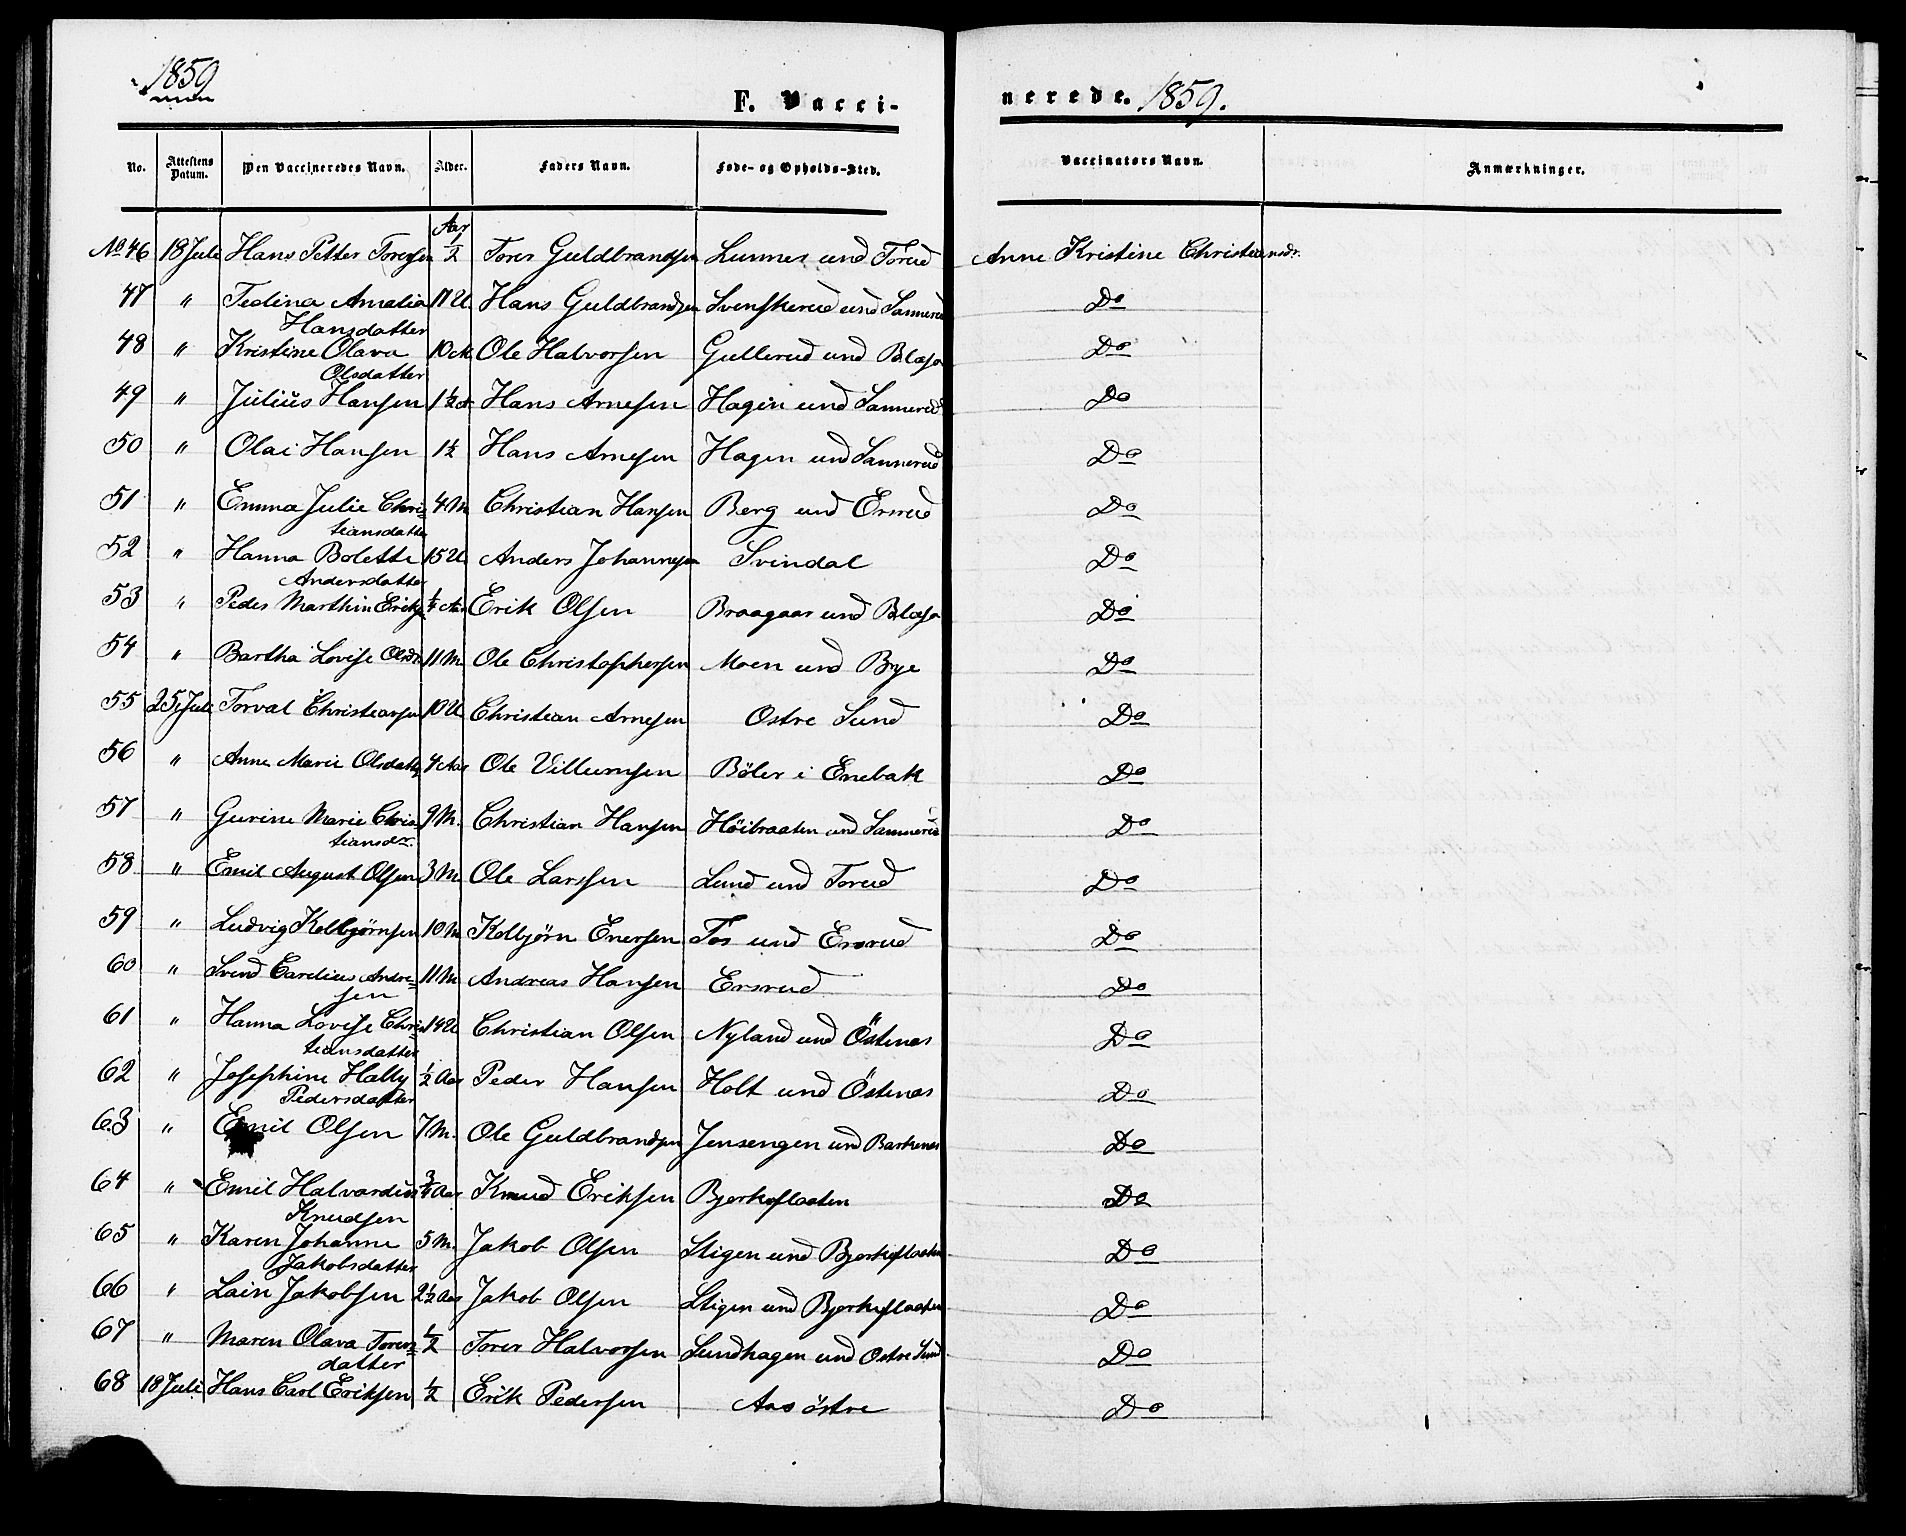 1859
F. Vaccinerede. 1859.
No. Attestens Datum. Den Vaccineredes Navn. Alder. Faders Navn. Føde- og Opholds-Sted. Vaccinators Navn. Anmærkninger.
Aar
No 46 18 Juli Hans Petter Toresen 1/2 Torer Guldbrandsen Lunnes und Torud Anne Kristine Christiansdr.
47 " Tedina Amalia Hansdatter 17 U. Hans Guldbrandsen Svenskerud und Sannerud Do
48 " Kristine Olava Olsdatter 10 M Ole Halvorsen Gullerud und Do
49 " Julius Hansen 1 1/2 Hans Arnesen Hagen und Sannerud Do
50 " Olai Hansen 1 1/2 Hans Arnesen Hagen und Sannerud Do
51 " Emma Julie Christiansdatter 4 M Christian Hansen Berg und Ersrud Do
52 " Hanna Bolette Andersdatter 15 U Anders Johannesen Svindal Do
53 " Peder Marthin Eriks Aar Erik Olsen Braagaar und Do
54 " Bartha Lovise Olsdr 11 M. Ole Christophersen Moen und Brye Do
55 25 Juli Torval Christiansen 10 U Christian Arnesen Ostre Sund Do
56 " Anne Marie Olsdatter 4 Aar Ole Villumsen Böler i Enebak Do
57 " Gurine Marie Christiansdr. 9 M. Christian Hansen Höibraaten und Sannerud Do
58 " Emil August Olsen 3 M Ole Larssen Lund und Torud Do
59 " Ludvig Kolbjørnsen 10 M Kolbjørn Enersen Tos und Ersrud Do
60 " Svend Carelius Andresen 11 M Andreas Hansen Ersrud Do
61 " Hanna Lovise Christiansdatter 14 U Christian Olsen Nyland und Östenes Do
62 " Josephine Hally Pedersdatter 1/2 Aar Peder Hansen Holt und Östenes Do
63 " Emil Olsen 7 M. Ole Guldbrandsen Jensengen und Barkenes Do
64 " Emil Halvardius Knudsen 3/4 Aar Knud Eriksen Bjerkeflaaten Do
65 " Karen Johanne Jakobsdatter 5 M. Jakob Olsen Stigen und Bjerkeflaaten Do
66 " Lain Jakobsen 2 1/2 Aar Jakob Olsen Stigen und Bjerkeflaaten Do
67 " Maren Olava Toresdatter 1/2 Torer Halvorsen Sundhagen und Ostre Sund Do
68 18 Juli Hans Carl Eriksen 1/2 Erik Pedersen Aas östre Do